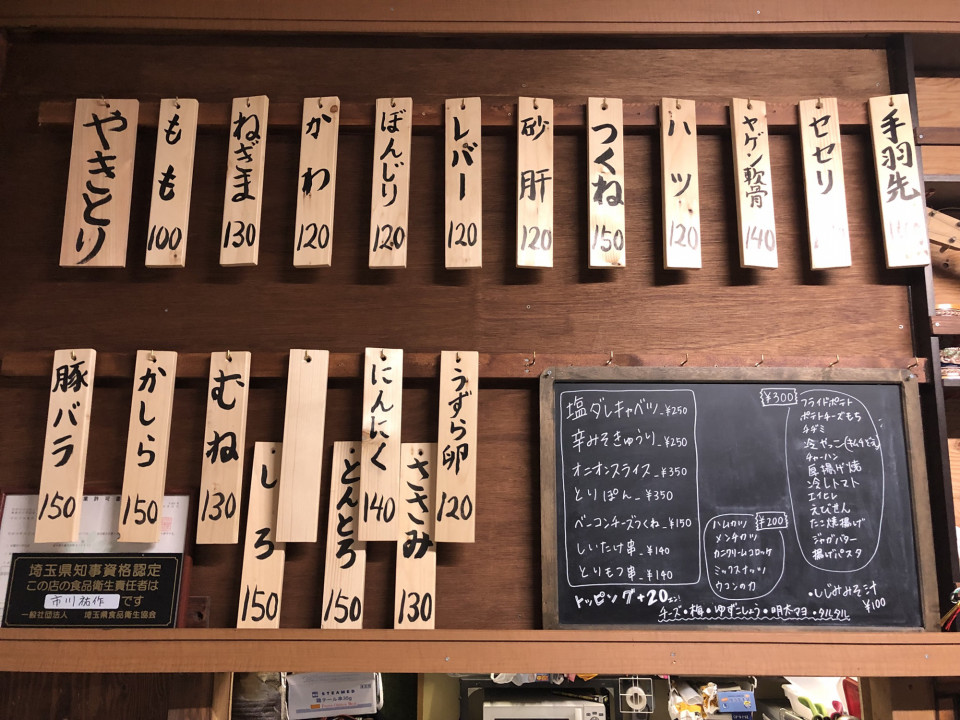 やきとり
もも 100
ねぎま 130
かわ 120
ぼんじり 120
レバー 120
砂肝 120
つくね 150
ハツ 120
ヤゲン軟骨 140
セセリ
手羽先
豚バラ 150
かしら 150
むね 130
しろ 150
とんとろ 150
にんにく 140
ささみ 130
うずら卵 120
塩ダレキャベツ ¥250
辛みそきゅうり ¥250
オニオンスライス ¥350
とりぽん ¥350
ベーコンチーズつくね ¥150
しいたけ串 ¥140
とりモツ串 ¥140
トッピング+20
チーズ・梅・ゆずこしょう・明太マヨ・タルタル
¥300
フライドポテト
ポテトチーズもち
チヂミ
冷やっこ(キムチ
チャーハン
厚揚げ焼
冷しトマト
エイヒレ
えびせん
たこ焼揚げ
ジャガバター
揚げパスタ
¥200
ハムカツ
メンチカツ
カニクリームコロッケ
ミックスナッツ
ウコンの力
・しじみみそ汁
¥100
埼玉県知事資格認定
この店の食品衛生責任者は
市川祐作 です
一般社団法人 埼玉県食品衛生協会
STEAMER